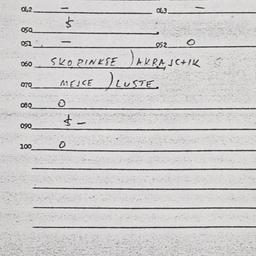 042 – 043 –
050 5
051 – 052 0
060 SKOPINKSE ) AKRAJCHIK
070 MEJCE ) LUSTE.
080 0
090 5 –
100 0